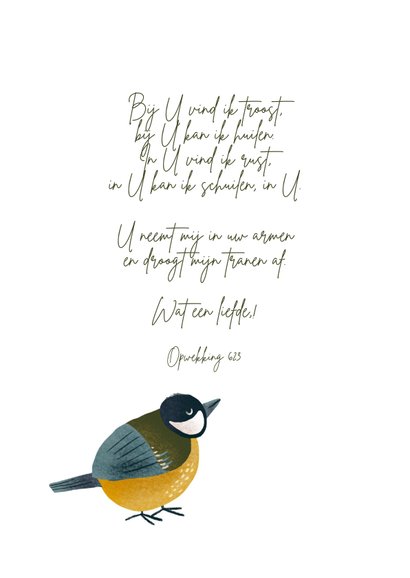 Bij U vind ik troost,
bij U kan ik huilen.
In U vind ik rust,
in U kan ik schuilen, in U.
U neemt mij in uw armen
en droogt mijn tranen af.
Wat een liefde,!
Opwekking 623